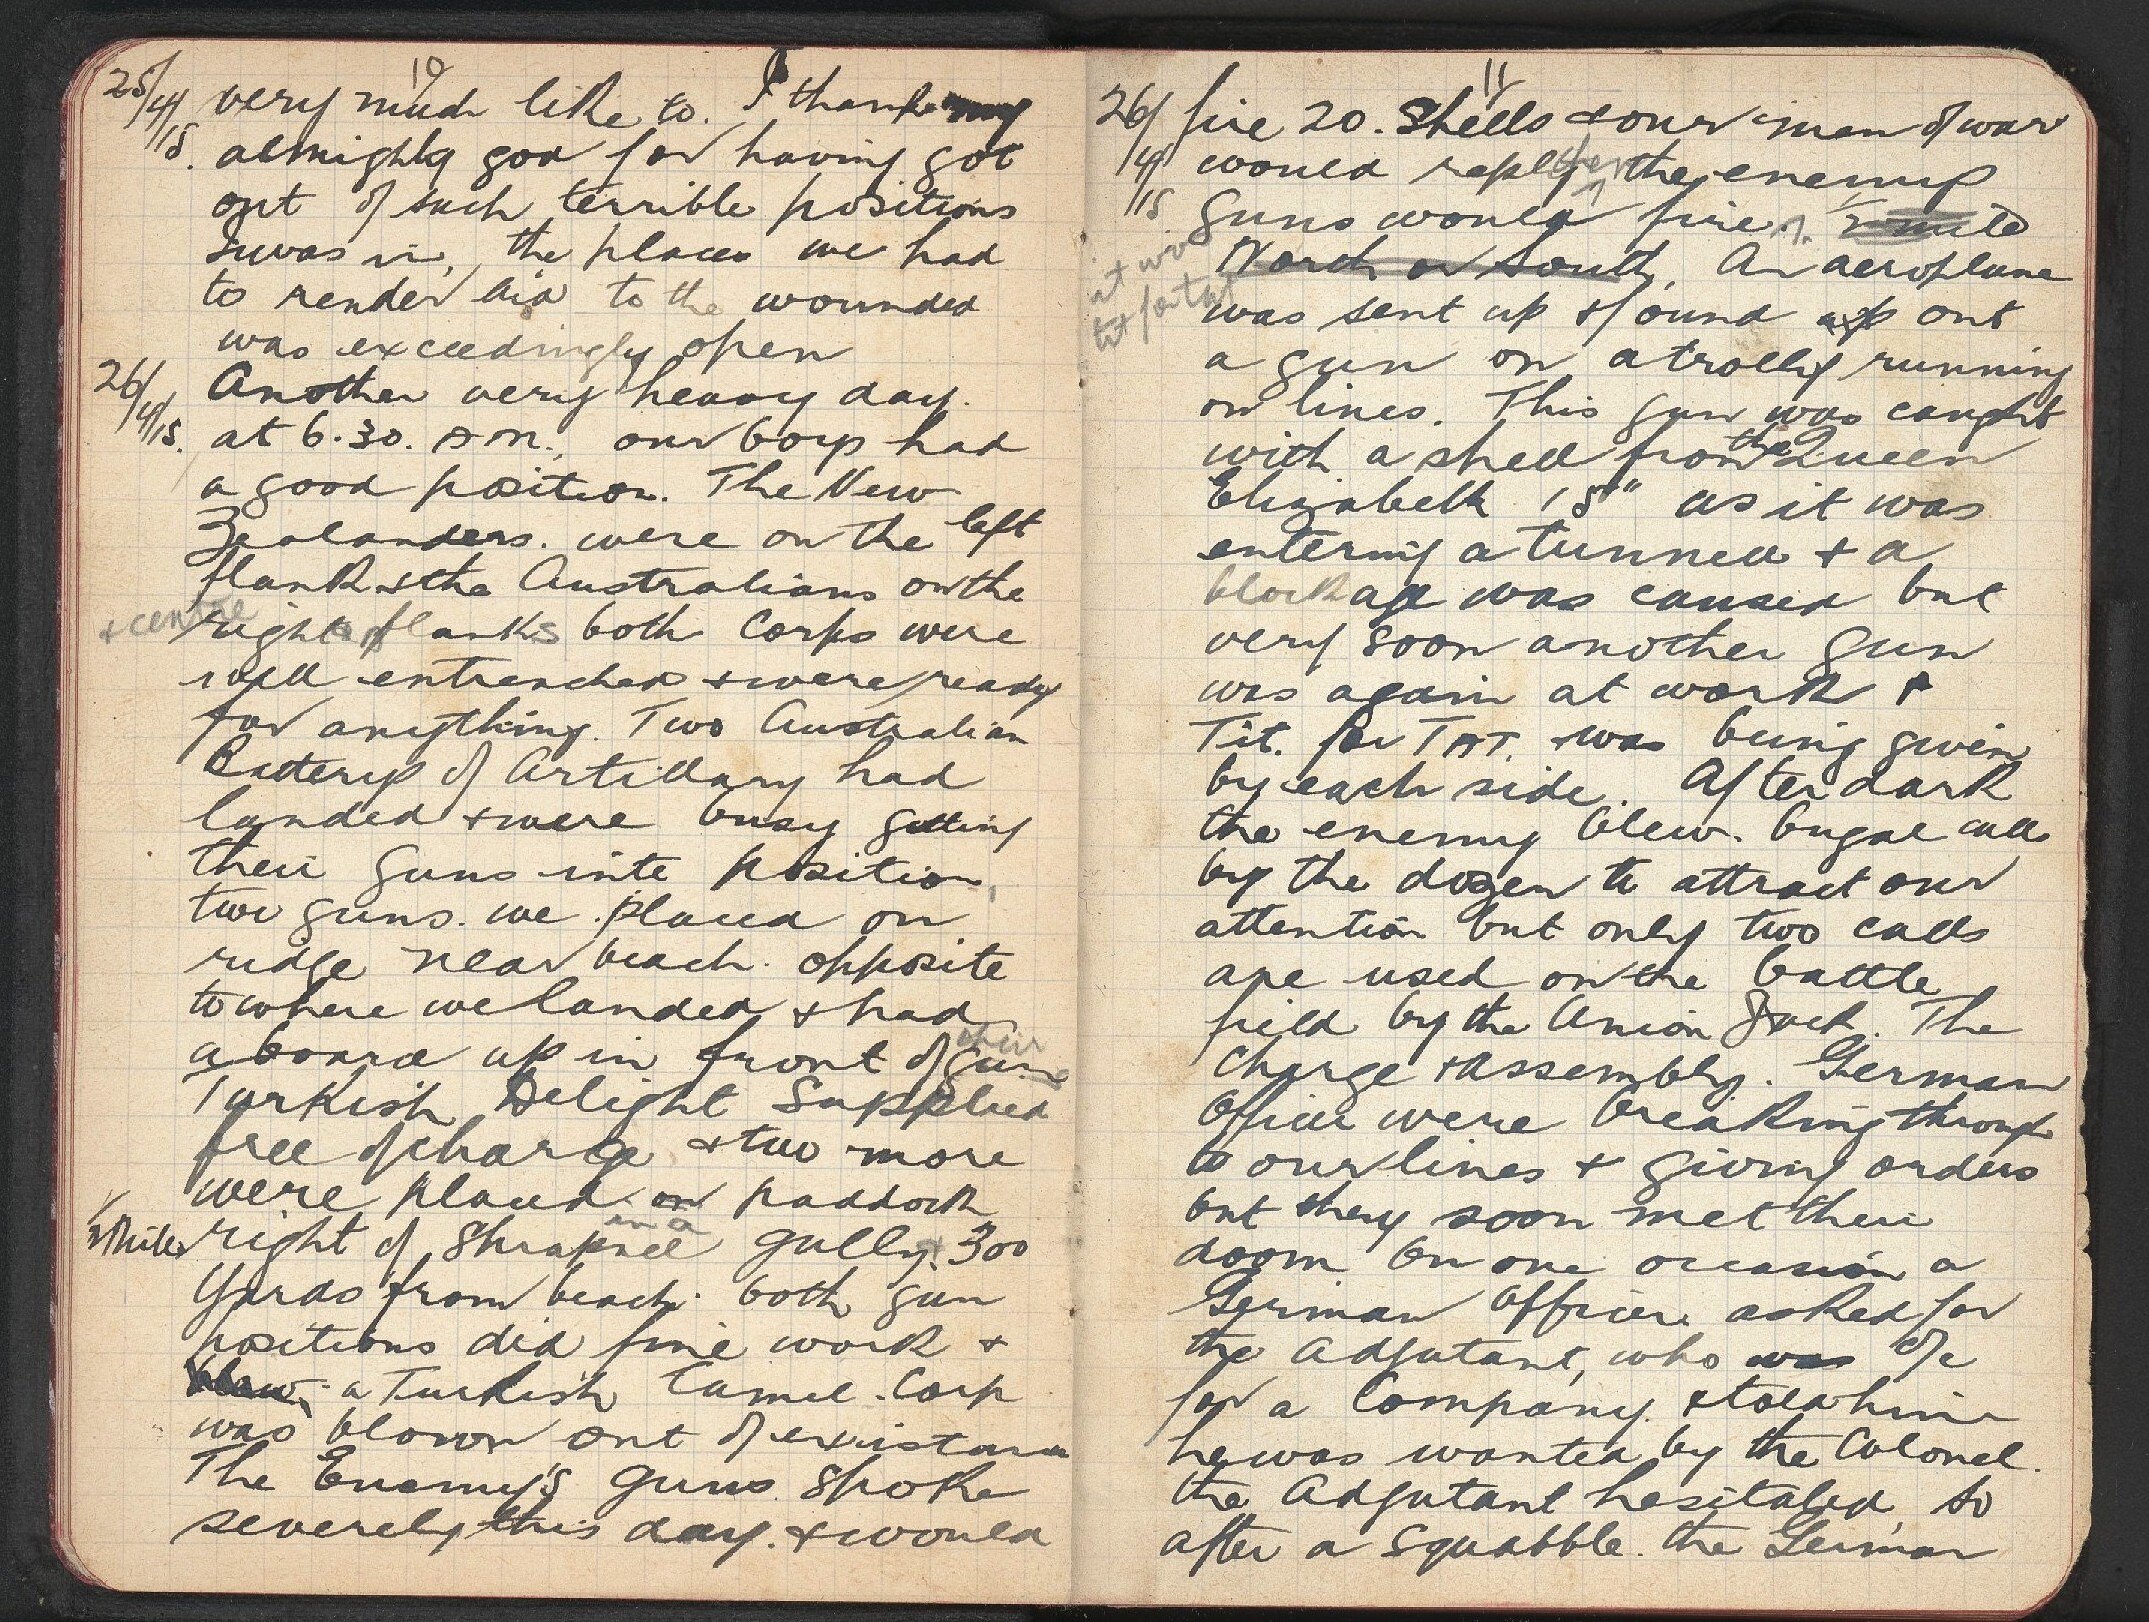 10
25/4/15. very much like to. I thank my
almighty god for having got
out of such terrible positions
I was in, the places we had
to render aid to the wounded
was exceedingly open
26/4/15. Another very heavy day.
at 6.30. AM., our Corp had
a good position. The New
Zealanders. were on the left
flank & the Australians on the
& centre right flanks both Corps were
well entrenched & were ready
for anything. Two Australian
Battery of Artillary had
landed & were busy getting
their guns into position,
two guns. we placed on
ridge near beach. opposite
to where we landed & had
a board up in front of their guns
Turkish Delight Supplied
free of charge & two more
were placed on paddock
1/2 Mile right of Shrapnel in a gully 300
yards from beach. both gun
positions did fine work &
blew a Turkish Camel. Corp
was blown out of existance
The Enemy's guns. spoke
severely this day. & would
11
26/4/15 fire 20. Shells & our man of war
would reply then the enemy
guns would fire 2 mile
North or South, An aeroplane
at work
tit for tat
was sent up & found out
a gun on a trolly running
on lines. This gun was caught
with a shell from the Queen
Elizabeth 15" as it was
entering a tunnel & a
blockage was caused but
very soon another gun
was again at work &
Tit. for TAT. was being given
by each side. After dark
the enemy blew. bugal calls
by the dozen to attract our
attention but only two calls
are used on the battle
field by the Union Jack. The
Charge & Assembly. German
Officer were breaking through
to our lines & giving orders
but they soon met their
doom. On one occasion a
German Officer. asked for
the Adjutant, who was O/c
for a Company. & told him
he was wanted by the Colonel.
the Adjutant hesitated, so
after a squabble. the German